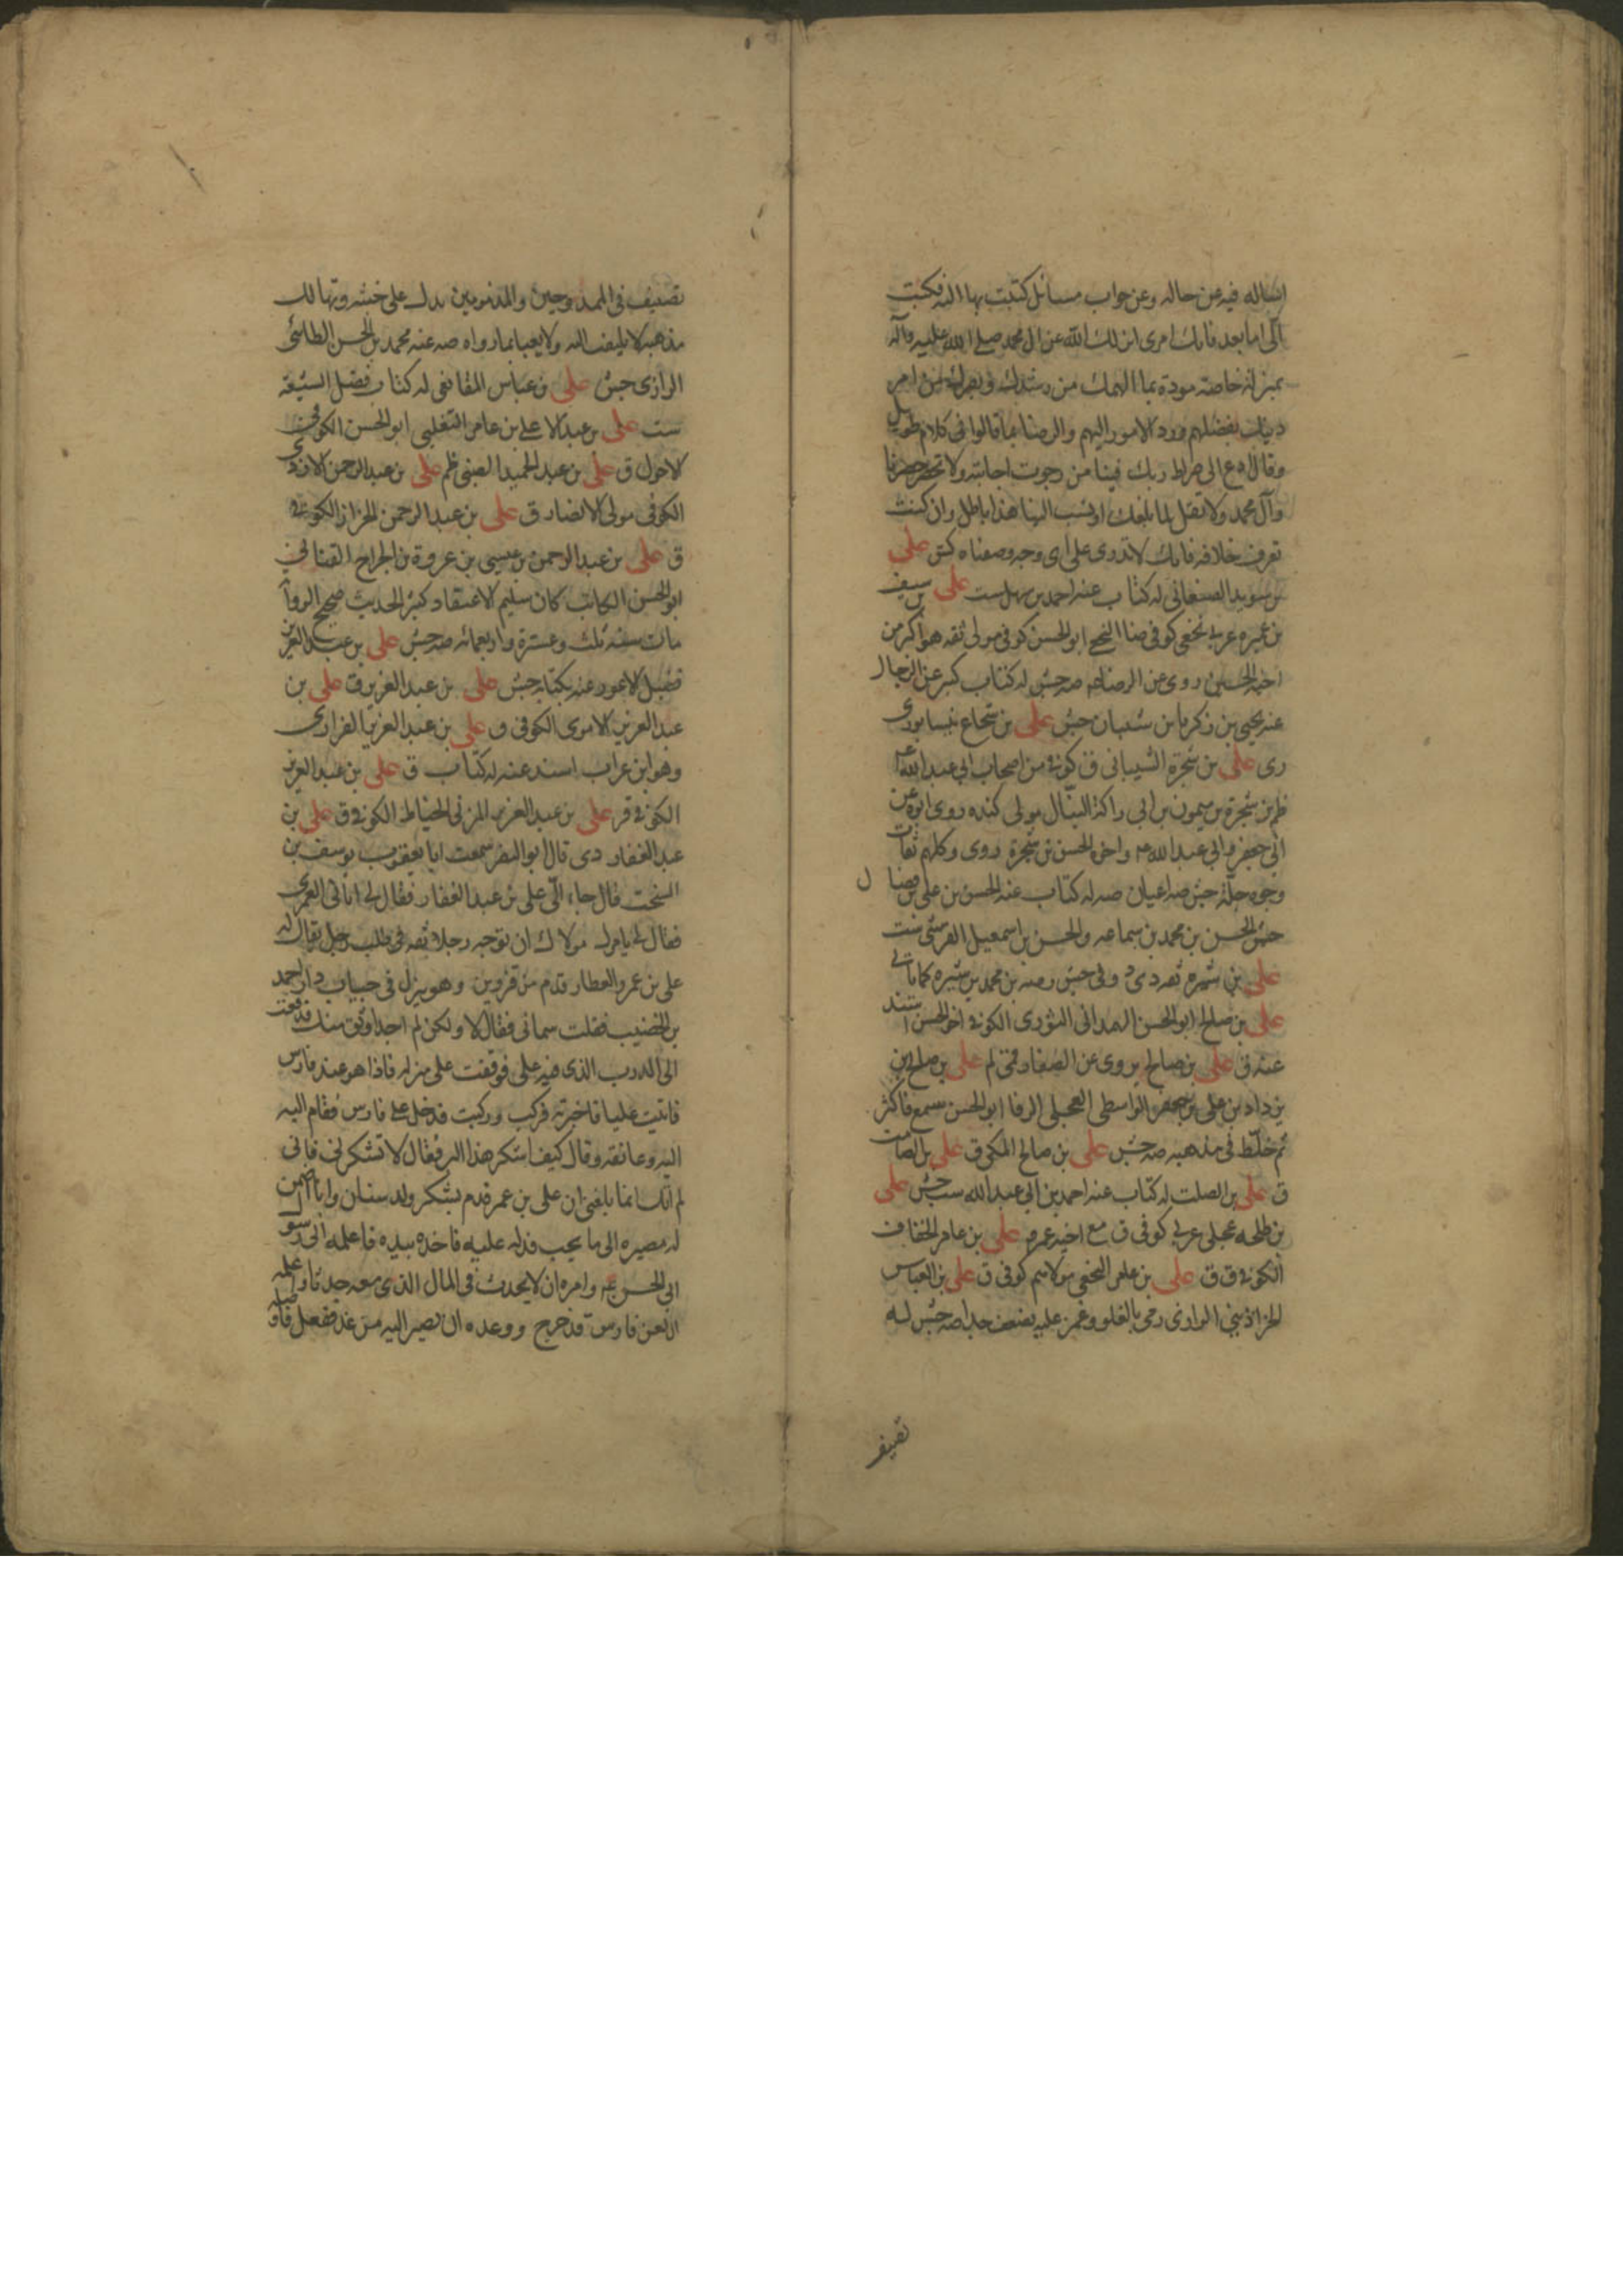 اساله فيه عن حاله وعن جواب مسائل كتبت بها اليه فكتب
الى اما بعد فانك امرئ انزلك الله من ال محمد صلى الله عليه وآله
بمنزلة خاصة مودة بما الهمك من رشدك وبصرك من امر
دينك بفضلهم ورد الامور اليهم والرضا بما قالوا فى كلام طويل
وقال ادع الى صراط ربك فينا من رجوت اجابته ولا تحصر حصرنا
وآل محمد ولا تقل لما بلغك او نسب الينا هذا باطل وان كنت
تعرف خلافه فانك لا تدرى على اى وجه وصفناه كش على
بن سويد الصنعانى له كتاب عنه احمد بن سهل ست على بن سيف
بن عميره عربى نخعى كوفى النخعى ابو الحسن كوفى مولى ثقه هو اكبر من
اخيه الحسين روى عن الرضا عم صه جش له كتاب كبير عن الرجال
عنه يحيى بن زكريا بن شيبان جش على بن شجاع نيسابورى
رى على بن شجرة الشيبانى ق كوفى من اصحاب ابى عبد الله عم
بن شجرة بن ميمون بن ابى اراكة النبال مولى كنده روى ابوه عن
ابى جعفر وابى عبد الله عم واخوه الحسن بن شجرة روى وكلهم ثقات
وجوه جلة جش صه اعيان صه له كتاب عنه الحسن بن على بن فضال
جش الحسن بن محمد بن سماعه والحسن بن اسمعيل القرشى ست
على بن شيره ثقه دى د وفى جش وصه بن محمد بن شيره كما ياتى
على بن صالح ابو الحسن الهمدانى الثورى الكوفى اخو الحسن اسند
عنه ق على بن صالح يروى عن الصفار قمى لم على بن صالح بن
يزداد بن على بن جعفر الواسطى العجلى الرفا ابو الحسن سمع فاكثر
ثم خلط فى مذهبه صه جش على بن صالح المكى ق على بن الصامت
ق على بن الصلت له كتاب عنه احمد بن ابى عبد الله ست جش على
بن طلحه عجلى عربى كوفى ق مع اخيه عمر على بن عامر الخفاف
الكوفى ق ق على بن عامر النخعى مولاهم كوفى ق على بن العباس
الخراذينى الرازى رمى بالغلو وغمز عليه ضعف جدا صه جش له
تصنيف
تصنيف فى الممدوحين والمذمومين يدل على خبثه وتهالك
مذهبه لا يلتفت اليه ولا يعبا بما رواه صه عنه محمد بن الحسن الطائى
الرازى جش على بن عباس المقانعى له كتاب فضل الشيعة
ست على بن عبد الاعلى بن عامر التغلبى ابو الحسن الكوفى
الاحول ق على بن عبد الحميد الضبى ظم على بن عبد الرحمن الازدى
الكوفى مولى الانصار ق على بن عبد الرحمن الخزاز الكوفى
ق على بن عبد الرحمن بن عيسى بن عروة بن الجراح القنانى
ابو الحسن الكاتب كان سليم الاعتقاد كثير الحديث صحيح الرواية
مات سنة ثلث وعشرة واربعمائه صه جش على بن عبد العزيز
الاعور عنه بكتابه جش على بن عبد العزيز ق على بن
عبد العزيز الاموى الكوفى ق على بن عبد العزيز الفزارى
وهو ابن غراب اسند عنه له كتاب ق على بن عبد العزيز
الكوفى قر على بن عبد العزيز المزنى الحناط الكوفى ق على بن
عبد الغفار دى قال ابو النضر سمعت ابا يعقوب يوسف بن
السخت قال جاء الى على بن عبد الغفار فقال لى اتانى العمرى
فقال لى يامرك مولاك ان توجه رجلا ثقه فى طلب رجل يقال له
على بن عمرو العطار قدم من قزوين وهو ينزل فى جنبات دار احمد
بن الخضيب فقلت سمانى فقال لا ولكن لم اجد اوثق منك فدفعت
الى الدرب الذى فيه على فوقفت على منزله فاذا هو عند فارس
فاتيت عليا فاخبرته فركب وركبت فدخل على فارس فقام اليه
اليه وعانقه وقال كيف اشكر هذا البر فقال لا تشكرنى فانى
لم آتك انما بلغنى ان على بن عمرو قدم يشكو ولد سنان وانا اضمن
له مصيره الى ما يحب فدله عليه فاخذه بيده فاعلمه انى رسول
ابى الحسن عم وامره ان لا يحدث فى المال الذى معه حدثا واعلمه
ان لعن فارس قد خرج ووعده ان يصير اليه من غد ففعل فاوصله